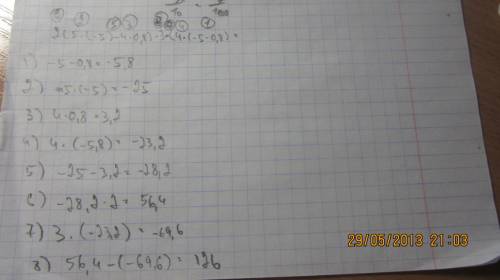 10 = 100
2(5·(-5)-4·0,8)-3·(4·(-5-0,8)=
1) -5-0,8=-5,8
2) 5·(-5)=-25
3) 4·0,8=3,2
4) 4·(-5,8)=-23,2
5) -25-3,2=-28,2
6) -28,2·2=56,4
7) 3·(-23,2)=-69,6
8) 56,4-(-69,6)=126
29/05/2013 21:03